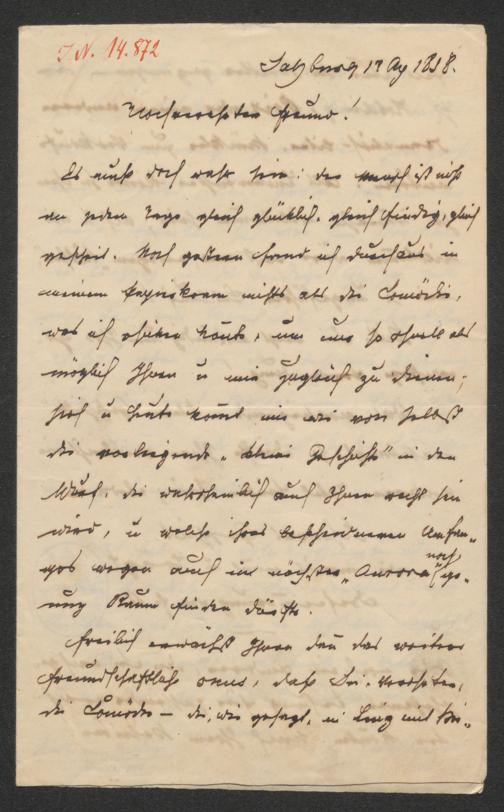 I. N. 14.872
Salzburg 17 Aug 1858.
Hochverehrter Freund!
Es muß doch wahr sein: der Mensch ist nicht
an jedem Tage gleich glücklich, gleich findig, gleich
gescheit. Noch gestern fand ich durchaus in
meinem nichts als die Comödie,
was ich schicken konnte, um uns so schnell als
möglich Ihnen u mir zugleich zu dienen;
sieh u heute kömt mir wie von selbst
die vorliegende „kleine Geschichte" in den
Wurf, die wahrscheinlich auch Ihnen recht sein
wird, u welche ihres bescheidenen Umfan-
ges wegen auch im nächsten „Aurora" noch ge-
nug Raum finden dürfte.
Freilich erwächst Ihnen dan das weitere
freundschaftliche onus, daß Sie, Verehrter,
die Comödie – die, wie gesagt, in Linz mit